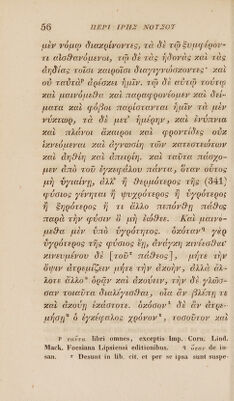 56 ΠΕΡΙ ΙΡΗΣ ΝΟΥΣΟΥ
μὲν νόμῳ διακρίνοντες, τὰ δὲ τῷ ξυμφέρον-
τι αἰσθανόμενοι, τῷ δὲ τὰς ἡδονὰς καὶ τὰς
ἀηδίας τοῖσι καιροῖσι διαγιγνώσκοντες· καὶ
οὐ ταῦτὰ ἀρέσκει ἡμῖν. τῷ δὲ αὐτῷ τούτῳ
καὶ μαινόμεθα καὶ παραφρονέομεν καὶ δεί-
ματα καὶ φόβοι παρίστανται ἡμῖν τὰ μὲν
νύκτωρ, τὰ δὲ μεθ᾽ ἡμέρην, καὶ ἐνύπνια
καὶ πλάνοι ἄκαιροι καὶ φροντίδες οὐκ
ἱκνεύμεναι καὶ ἀγνωσίη τῶν κατεστεώτων
καὶ ἀηθίη καὶ ἀπειρίη. καὶ ταῦτα πάσχο-
μεν ἀπὸ τοῦ ἐγκεφάλου πάντα, ὅταν οὗτος
μὴ ὑγιαίνῃ, ἀλλ᾽ ἢ θερμότερος τῆς (341)
φύσιος γένηται ἢ ψυχρότερος ἢ ὑγρότερος
ἢ ξηρότερος ἤ τι ἄλλο πεπόνθῃ πάθος
παρὰ τὴν φύσιν ὃ μὴ ἐώθεε. Καὶ μαινό-
μεθα μὲν ὑπὸ ὑγρότητος. ὁκόταν γὰρ
ὑγρότερος τῆς φύσιος ἔῃ, ἀνάγκη κινέεσθαι·
κινευμένου δὲ [τοῦ πάθεος], μήτε τὴν
ὄψιν ἀτρεμίζειν μήτε τὴν ἀκοήν, ἀλλὰ ἄλ-
λοτε ἄλλο ὁρᾶν καὶ ἀκούειν, τὴν δὲ γλῶσ-
σαν τοιαῦτα διαλέγεσθαι, οἷα ἂν βλέπῃ τε
καὶ ἀκούῃ ἑκάστοτε. ὁκόσον δὲ ἂν ἀτρε-
μήσῃ ὁ ἐγκέφαλος χρόνον, τοσοῦτον καὶ
p ταῦτα libri omnes, exceptis Imp. Corn. Lind.
Mack. Foesiana Lipsiensi editionibus. q ὅταν de in-
san. r Desunt in lib. cit. et per se ipsa sunt suspe-